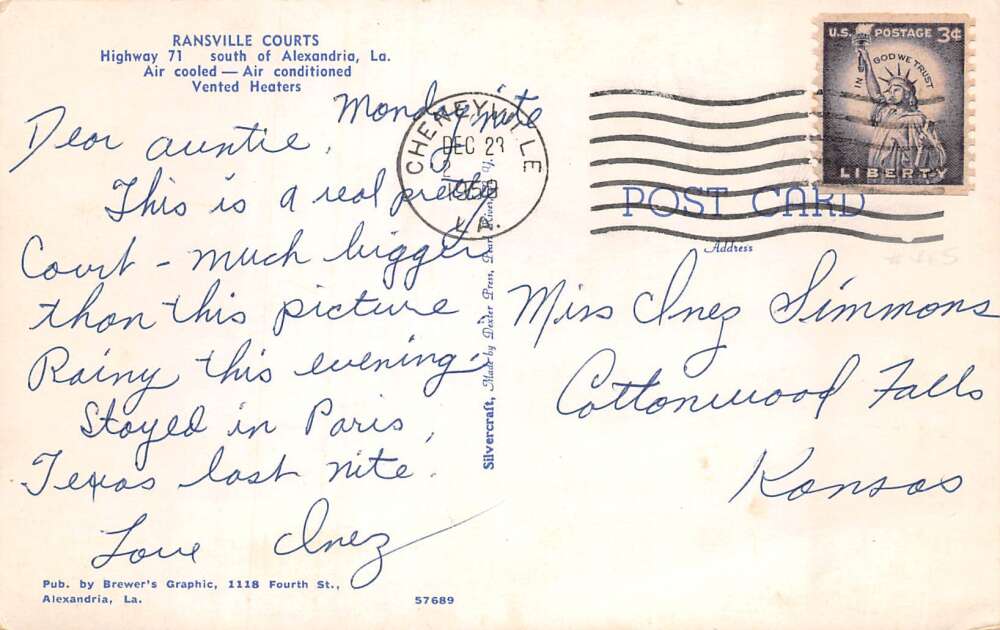 RANSVILLE COURTS
Highway 71 south of Alexandria, La.
Air cooled — Air conditioned
Vented Heaters
Monday nite
Dear auntie,
This is a real pretty
Court - much bigger
than this picture
Rainy this evening.
Stayed in Paris,
Texas last nite.
Love Inez
Pub. by Brewer's Graphic, 1118 Fourth St.,
Alexandria, La.
57689
Silvercraft, Made by Dexter Press, Pearl River, N. Y.
CHENEYVILLE
DEC 23
LA.
U.S. POSTAGE 3¢
IN GOD WE TRUST
LIBERTY
POST CARD
Address
Miss Inez Simmons
Cottonwood Falls
Kansas